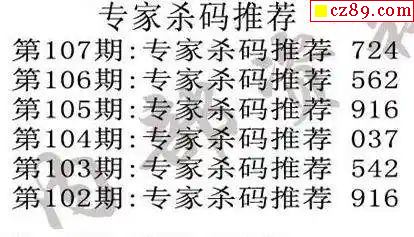 cz89.com
专家杀码推荐
第107期:专家杀码推荐 724
第106期:专家杀码推荐 562
第105期:专家杀码推荐 916
第104期:专家杀码推荐 037
第103期:专家杀码推荐 542
第102期:专家杀码推荐 916